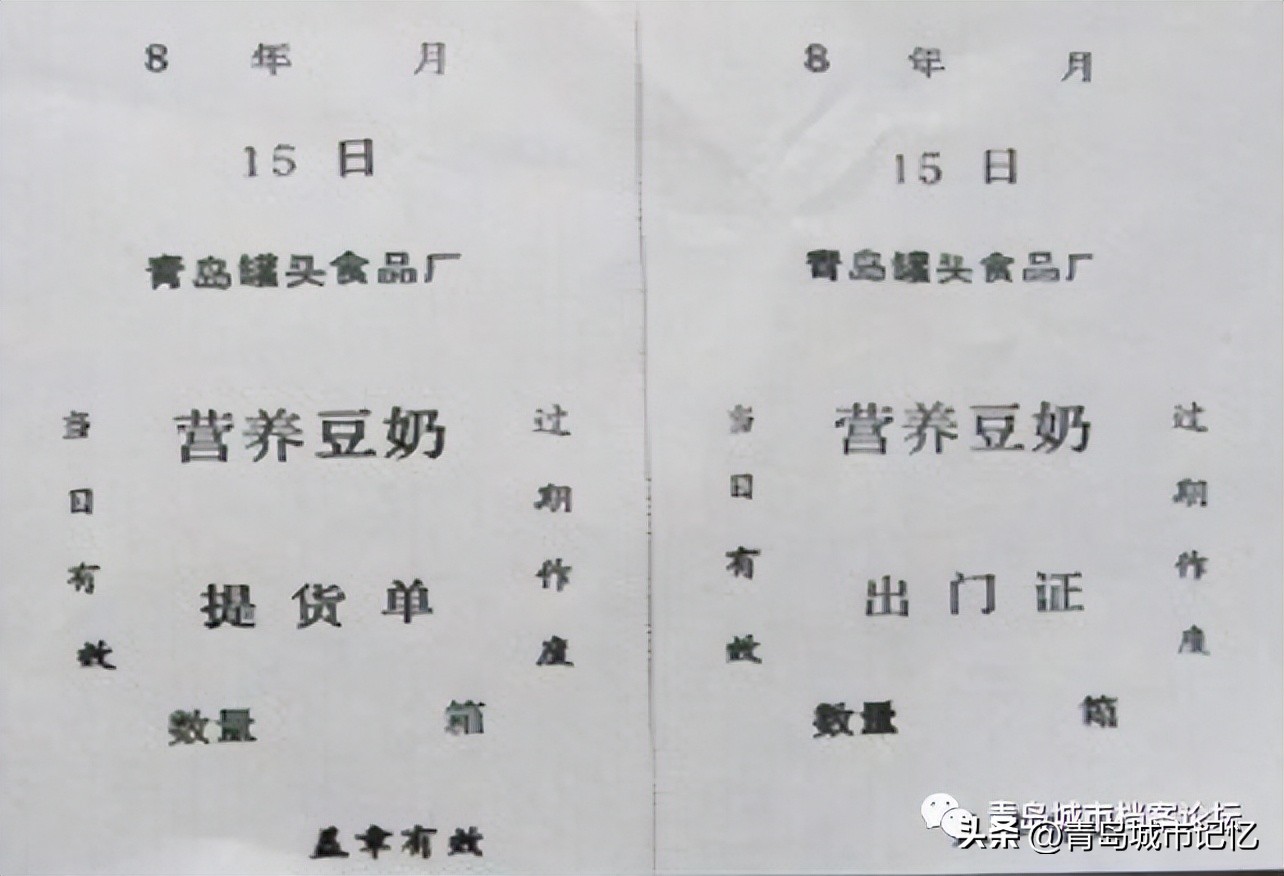 8 年 月
15 日
青岛罐头食品厂
当日有效
营养豆奶
过期作废
提货单
数量 箱
盖章有效
8 年 月
15 日
青岛罐头食品厂
当日有效
营养豆奶
过期作废
出门证
数量 箱
青岛城市档案论坛
头条 @青岛城市记忆